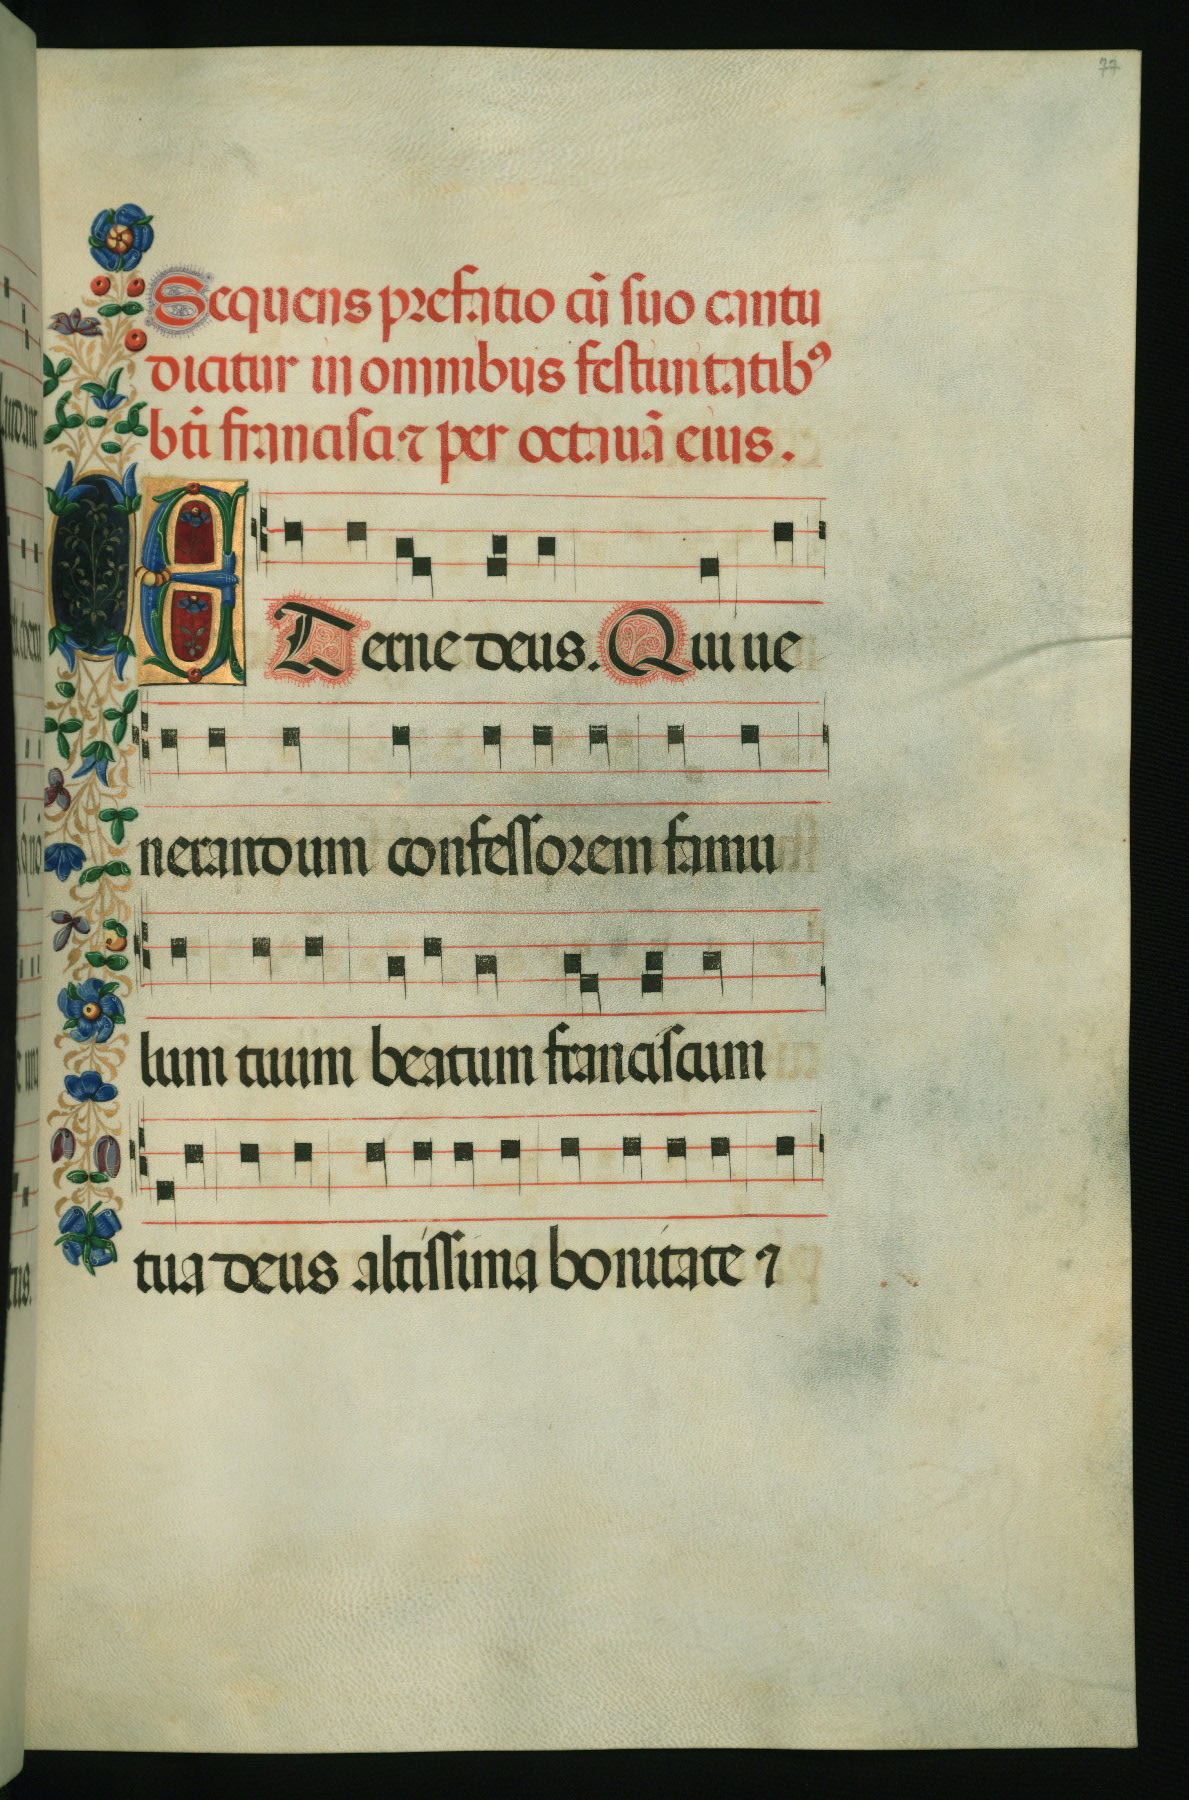 77
Sequens prefatio cū suo cantu
dicitur in omnibus festiuitatibꝰ
bt̄i francisci ⁊ per octauā eius.
ETerne deus. Qui ue
nerandum confessorem famu
lum tuum beatum franciscum
tua deus altissima bonitate ⁊